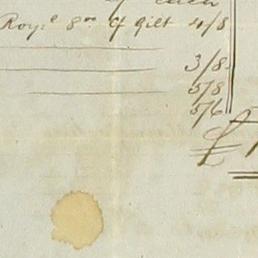 Roy.e 8vo ½ gilt 4/8
3/8
5/8
5/6
£